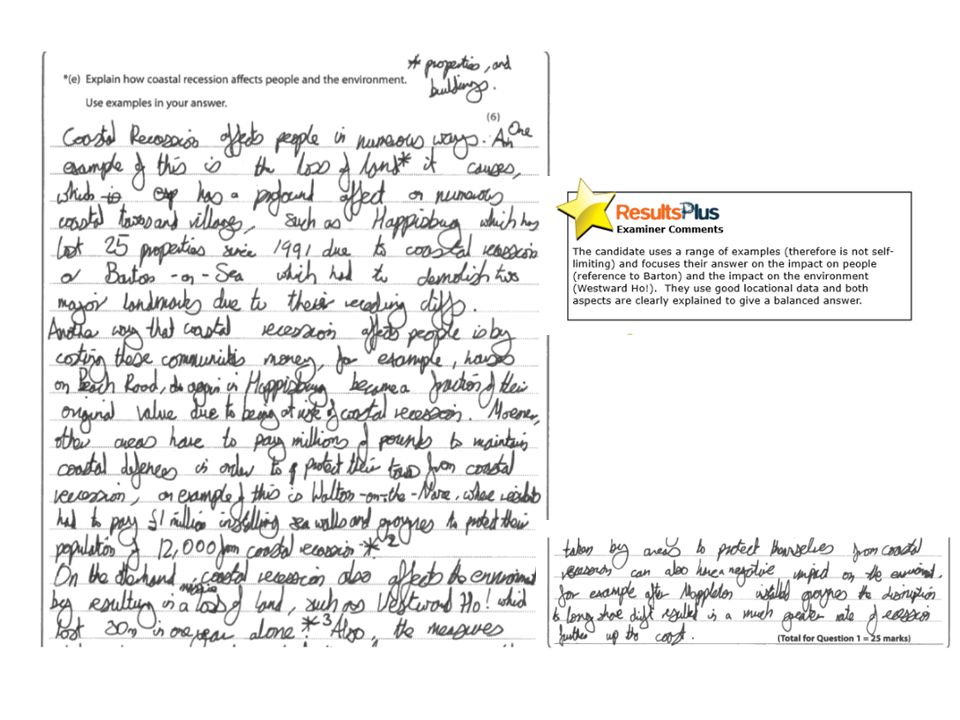 *(e) Explain how coastal recession affects people and the environment.
* properties, and
buildings.
Use examples in your answer.
(6)
Coastal Recession affects people in numerous ways. An One
example of this is the loss of land* it causes,
which is exp has a profound affect on numerous
coastal towns and villages, such as Happisburg which has
lost 25 properties since 1991 due to coastal recession
or Barton-on-Sea which had to demolish two
major landmarks due to their receding cliffs.
Another way that coastal recession affects people is by
costing these communities money, for example, houses
on Beach Road, again in Happisburg became a fraction of their
original value due to being at risk of coastal recession. Moreover,
other areas have to pay millions of pounds to maintain
coastal defences in order to protect their towns from coastal
recession, an example of this is Walton-on-the-Naze, where residents
had to pay £1 million installing sea walls and groynes to protect their
population of 12,000 from coastal recession *2
On the otherhand, coastal recession also affects the environment
by resulting in a massive loss of land, such as Westward Ho! which
lost 30m in one year alone *3 Also, the measures
taken by areas to protect themselves from coastal
recession can also have a negative impact on the environment,
for example after Mappleton installed groynes the disruption
to long shore drift resulted in a much greater rate of recession
further up the coast.
(Total for Question 1 = 25 marks)
ResultsPlus
Examiner Comments
The candidate uses a range of examples (therefore is not self-
limiting) and focuses their answer on the impact on people
(reference to Barton) and the impact on the environment
(Westward Ho!). They use good locational data and both
aspects are clearly explained to give a balanced answer.